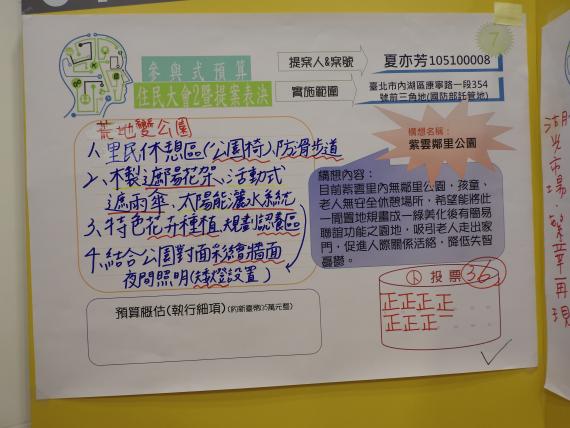 7
參與式預算
住民大會2暨提案表決
提案人&案號
夏亦芳105100008
實施範圍
臺北市內湖區康寧路一段354
號前三角地(國防部託管地)
荒地變公園
1、里民休憩區(公園椅)、防滑步道
2、木製遮陽花架、活動式
遮雨傘、太陽能灑水系統
3、特色花卉種植 規劃認養區
4、結合公園對面彩繪牆面
夜間照明(矮燈設置)
構想名稱：
紫雲鄰里公園
構想內容：
目前紫雲里內無鄰里公園，孩童、
老人無安全休憩場所，希望能將此
一閒置地規畫成一綠美化後有簡易
聯誼功能之園地，吸引老人走出家
門，促進人際關係活絡，降低失智
憂鬱。
預算概估(執行細項)(約新臺幣35萬元整)
投票 36
正正正正
正正正
湖光市場
再現